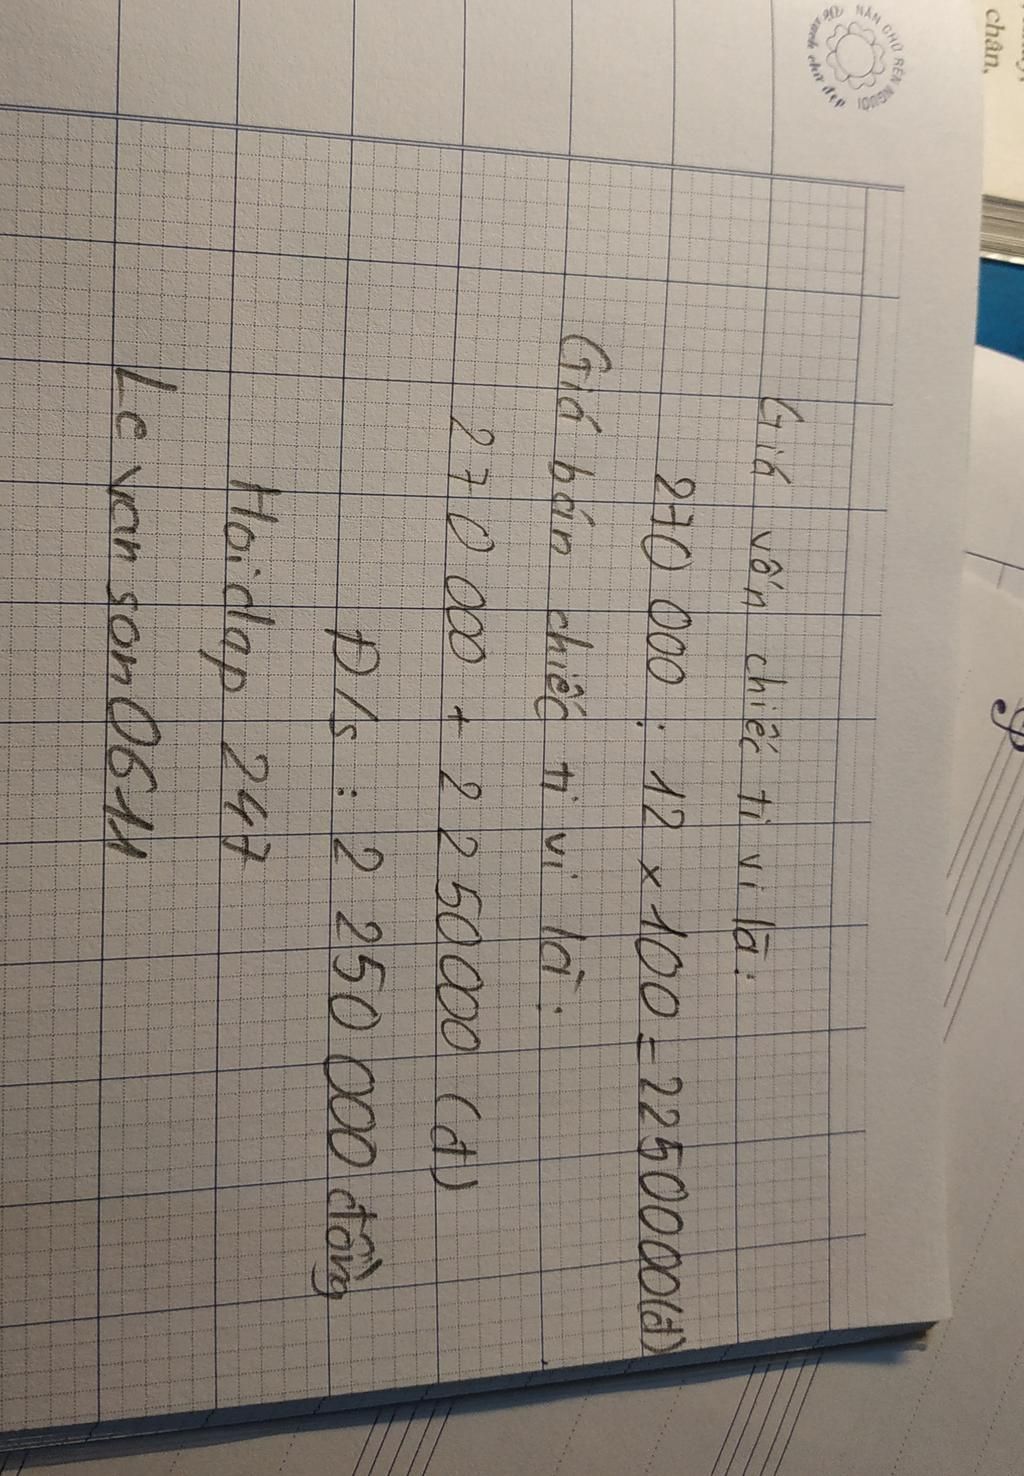 Giá vốn chiếc ti vi là:
270 000 : 12 x 100 = 2250000(đ)
Giá bán chiếc ti vi là:
270 000 + 2 250000 (đ)
Đ/s : 2 250 000 đồng
Hoidap 247
Le van son0611
NÉN NGƯỜI
chân,